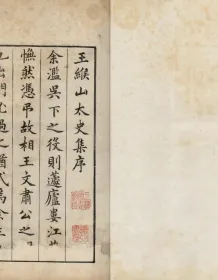 王緱山太史集序
余濫吳下之役則蘧廬婁江
憮然憑弔故相王文肅公之
過之猶